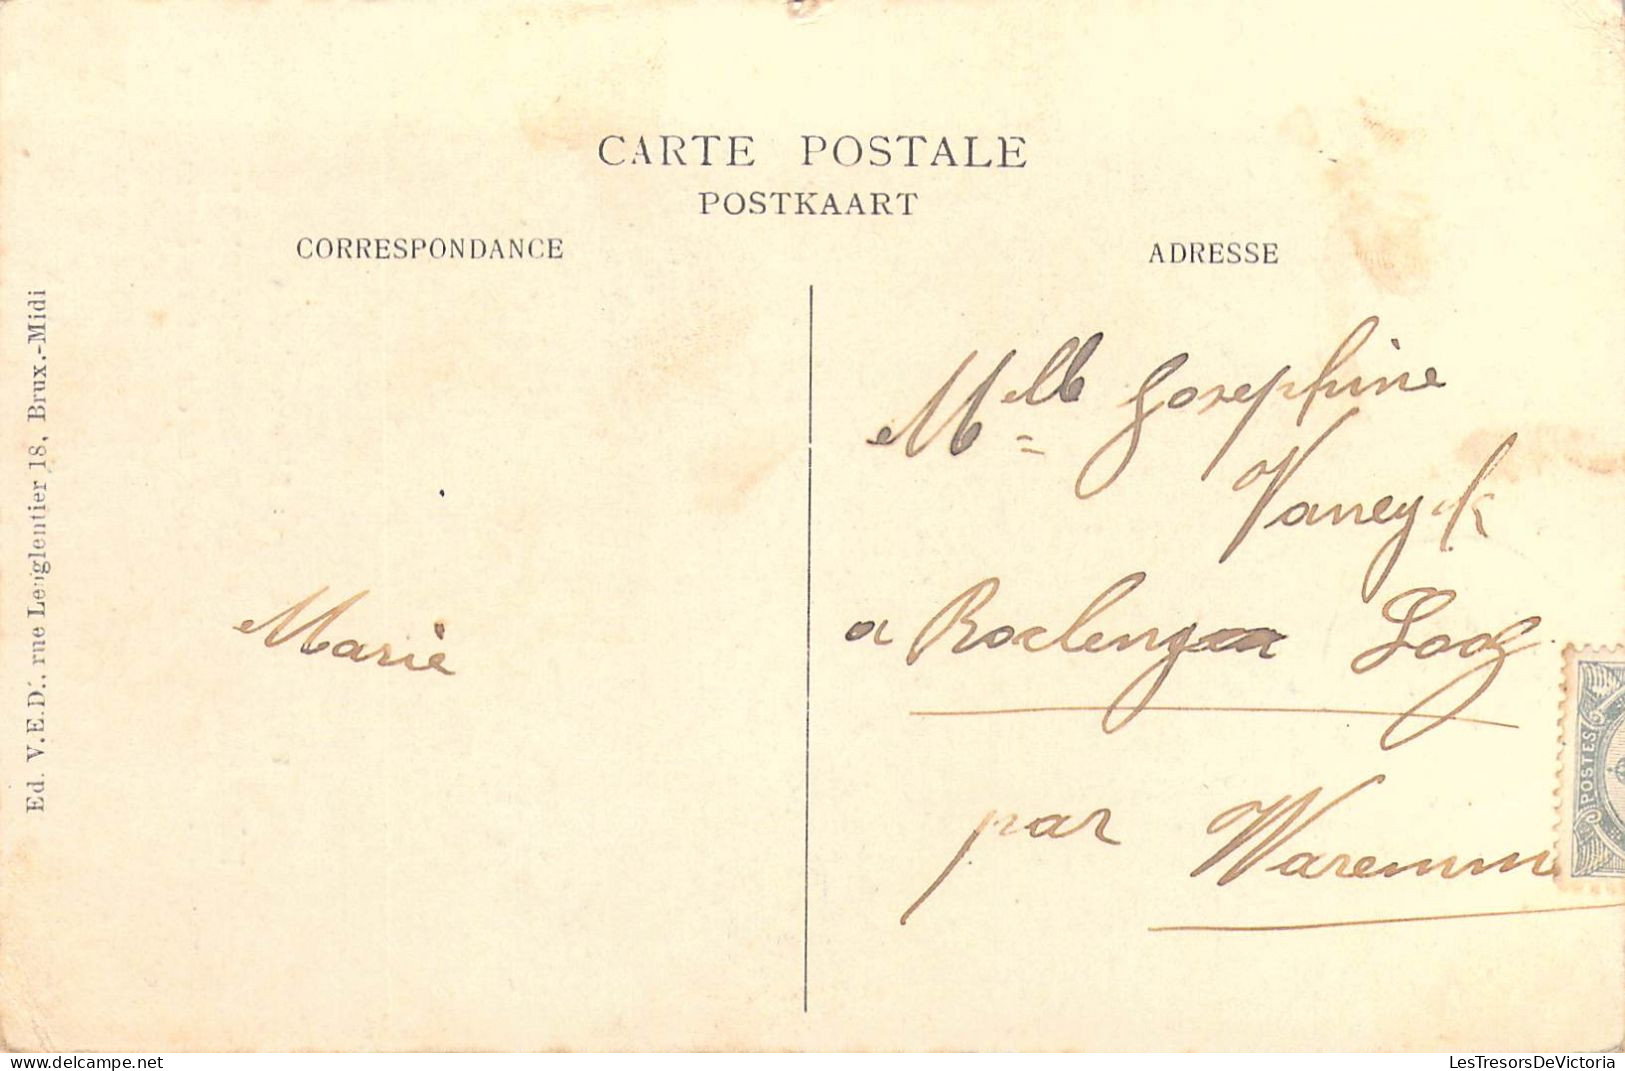 CARTE POSTALE
POSTKAART
CORRESPONDANCE
ADRESSE
Ed. V.E.D., rue Lenglentier 18, Brux.-Midi
Marie
Melle Josephine
Vaneyck
a Roclengen Looz
par Waremm
POSTES
LesTresorsDeVictoria
delcampe.net